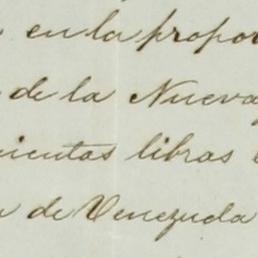 en la propor
de la Nueva
cientas libras
de Venezuela